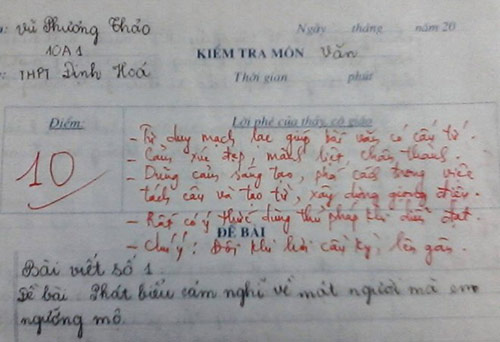 : Vũ Phương Thảo Ngày tháng năm 20
10A1 KIỂM TRA MÔN Văn
: THPT Định Hoá Thời gian phút
Điểm: Lời phê của thầy, cô giáo
10
- Tư duy mạch lạc giúp bài văn có cấu tứ.
- Cảm xúc đẹp, mãnh liệt, chân thành.
- Dùng câu sáng tạo, phá cách trong việc
tách câu và tạo từ, xây dựng giọng điệu.
- Rất có ý thức dùng thủ pháp khi diễn đạt.
ĐỀ BÀI
- Chú ý: Đôi khi hơi cầu kỳ, lên gân.
Bài viết số 1.
Đề bài: Phát biểu cảm nghĩ về một người mà em
ngưỡng mộ.